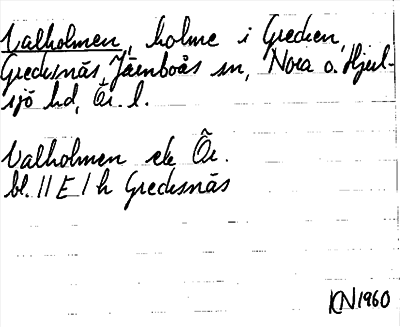 Valholmen, holme i Grecken,
Greckesnäs, Järnboås sn, Nora o. Hjul-
sjö hd, Ör. l.
Valholmen ek Ör.
bl. 11 E 1 h Greckesnäs
KN 1960